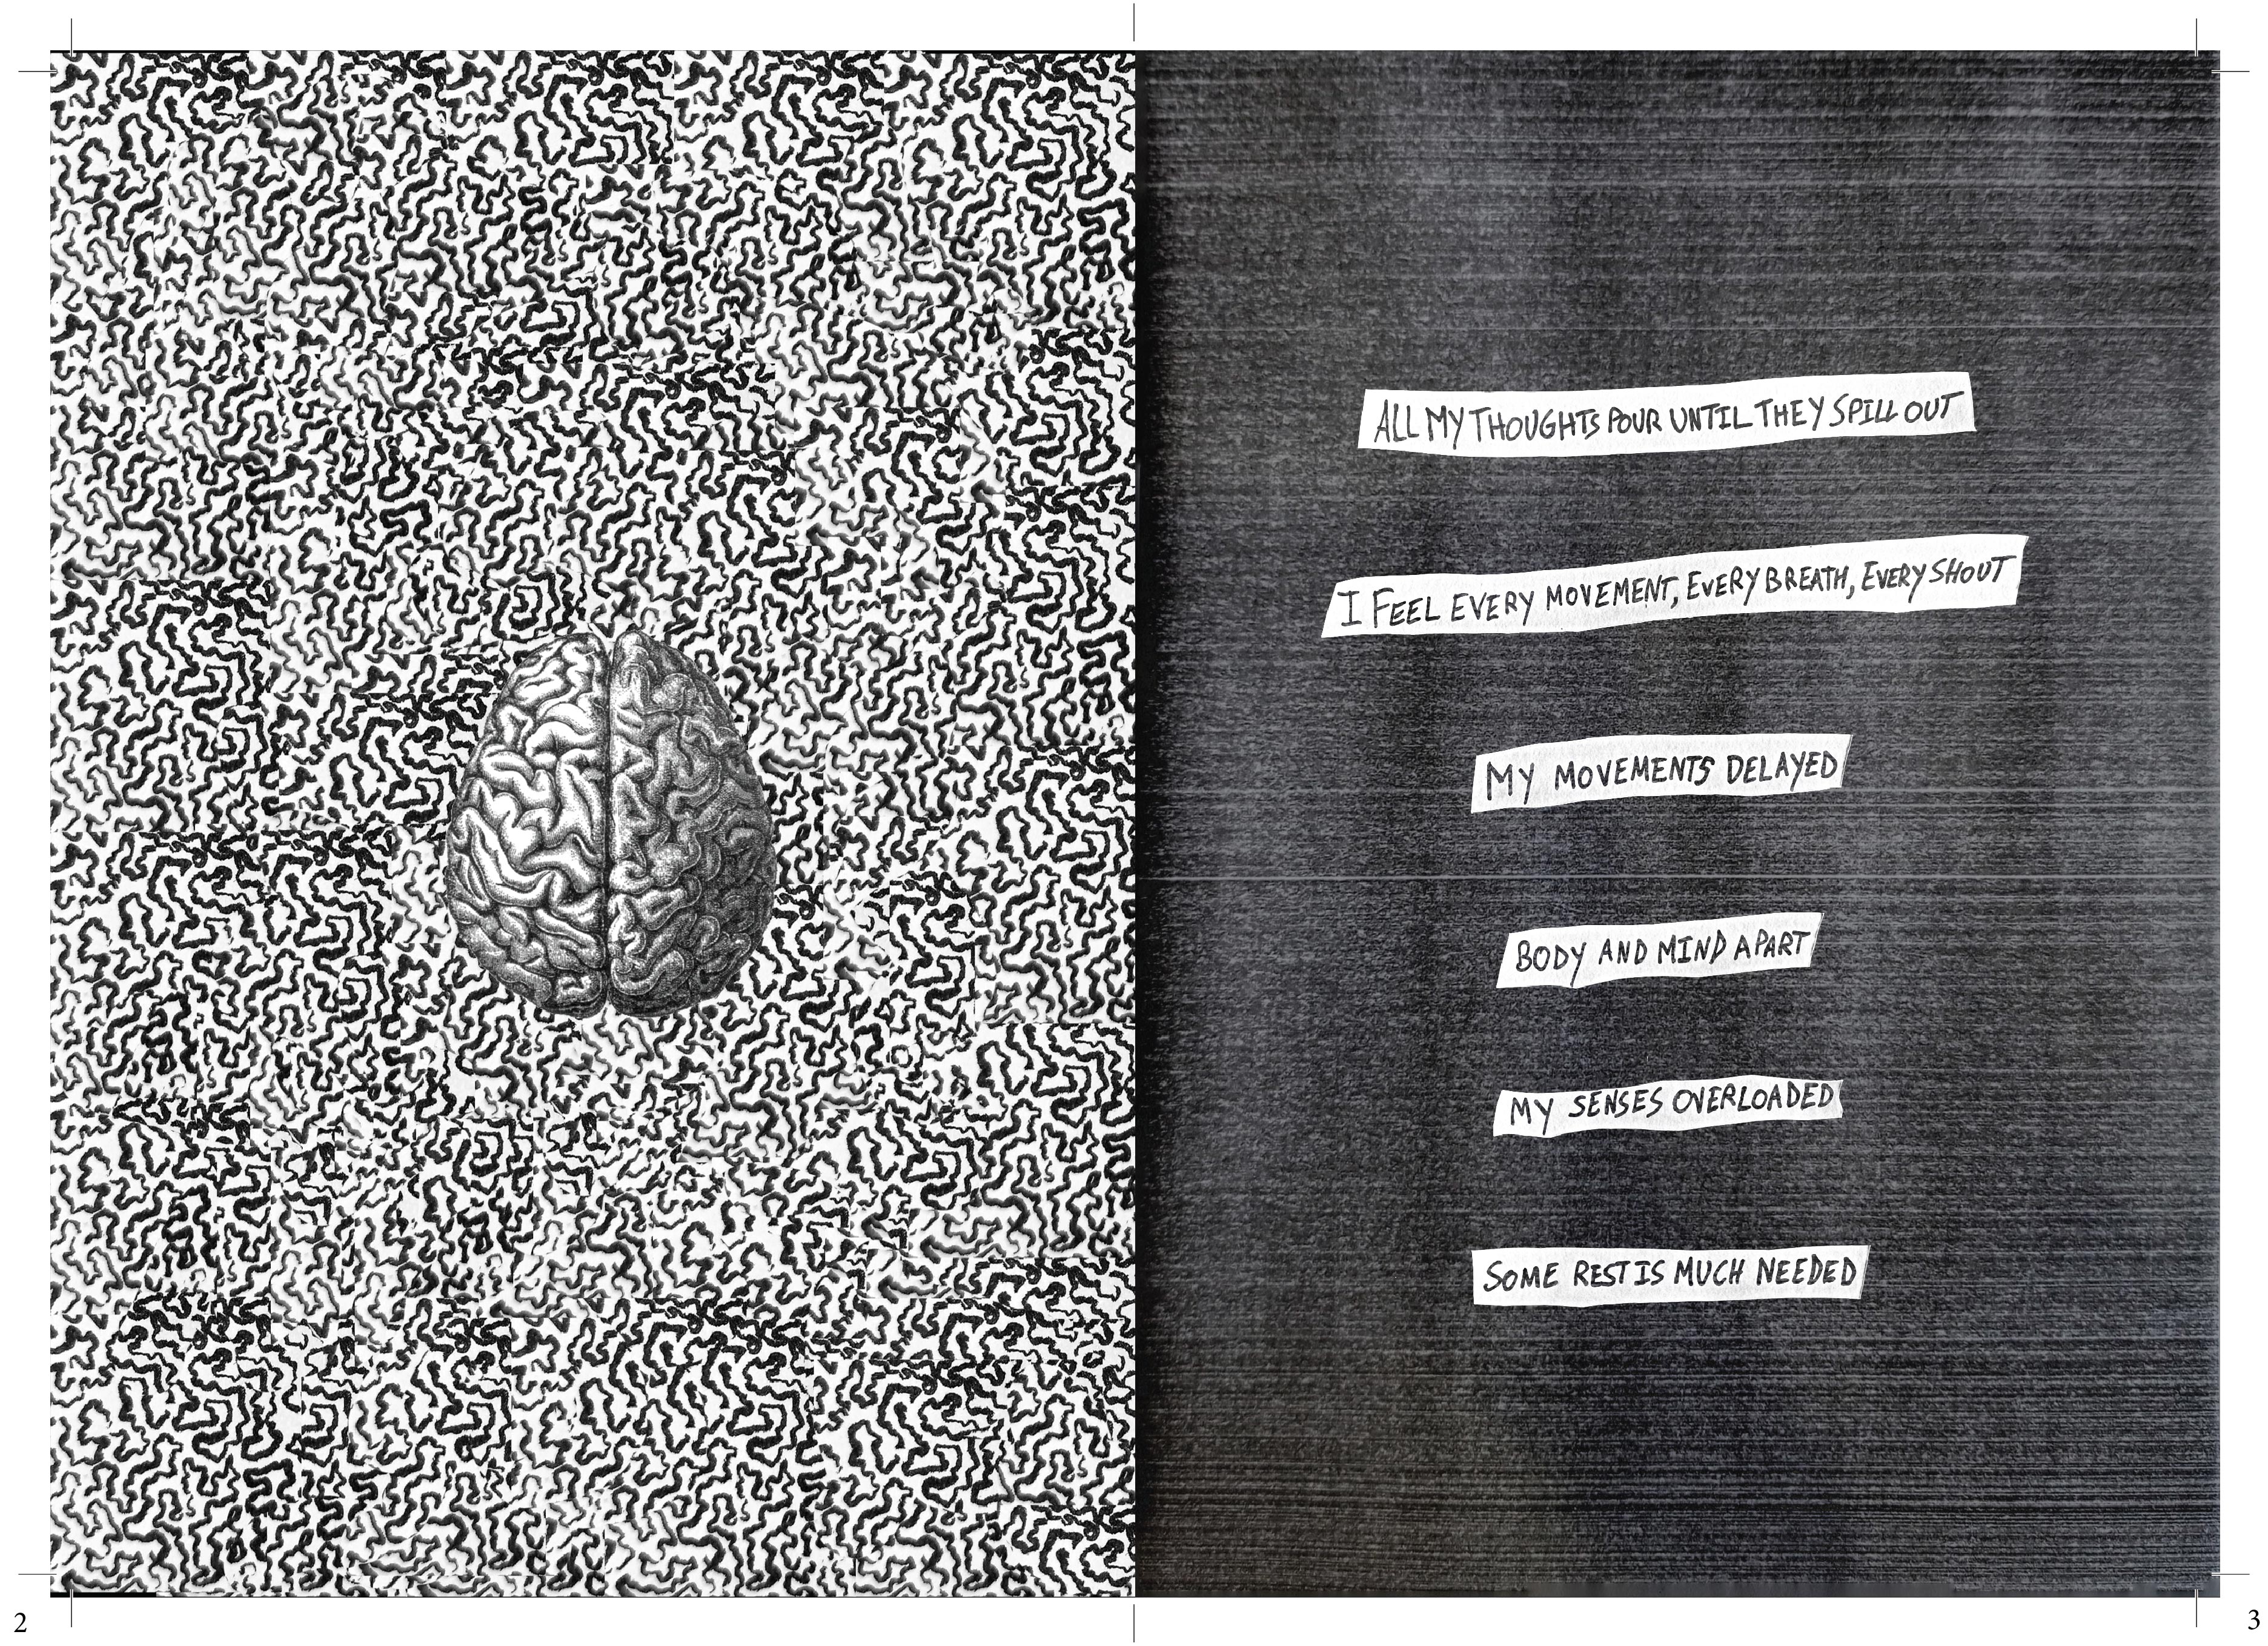 ALL MY THOUGHTS POUR UNTIL THEY SPILL OUT
I FEEL EVERY MOVEMENT, EVERY BREATH, EVERY SHOUT
MY MOVEMENTS DELAYED
BODY AND MIND APART
MY SENSES OVERLOADED
SOME REST IS MUCH NEEDED
2
3